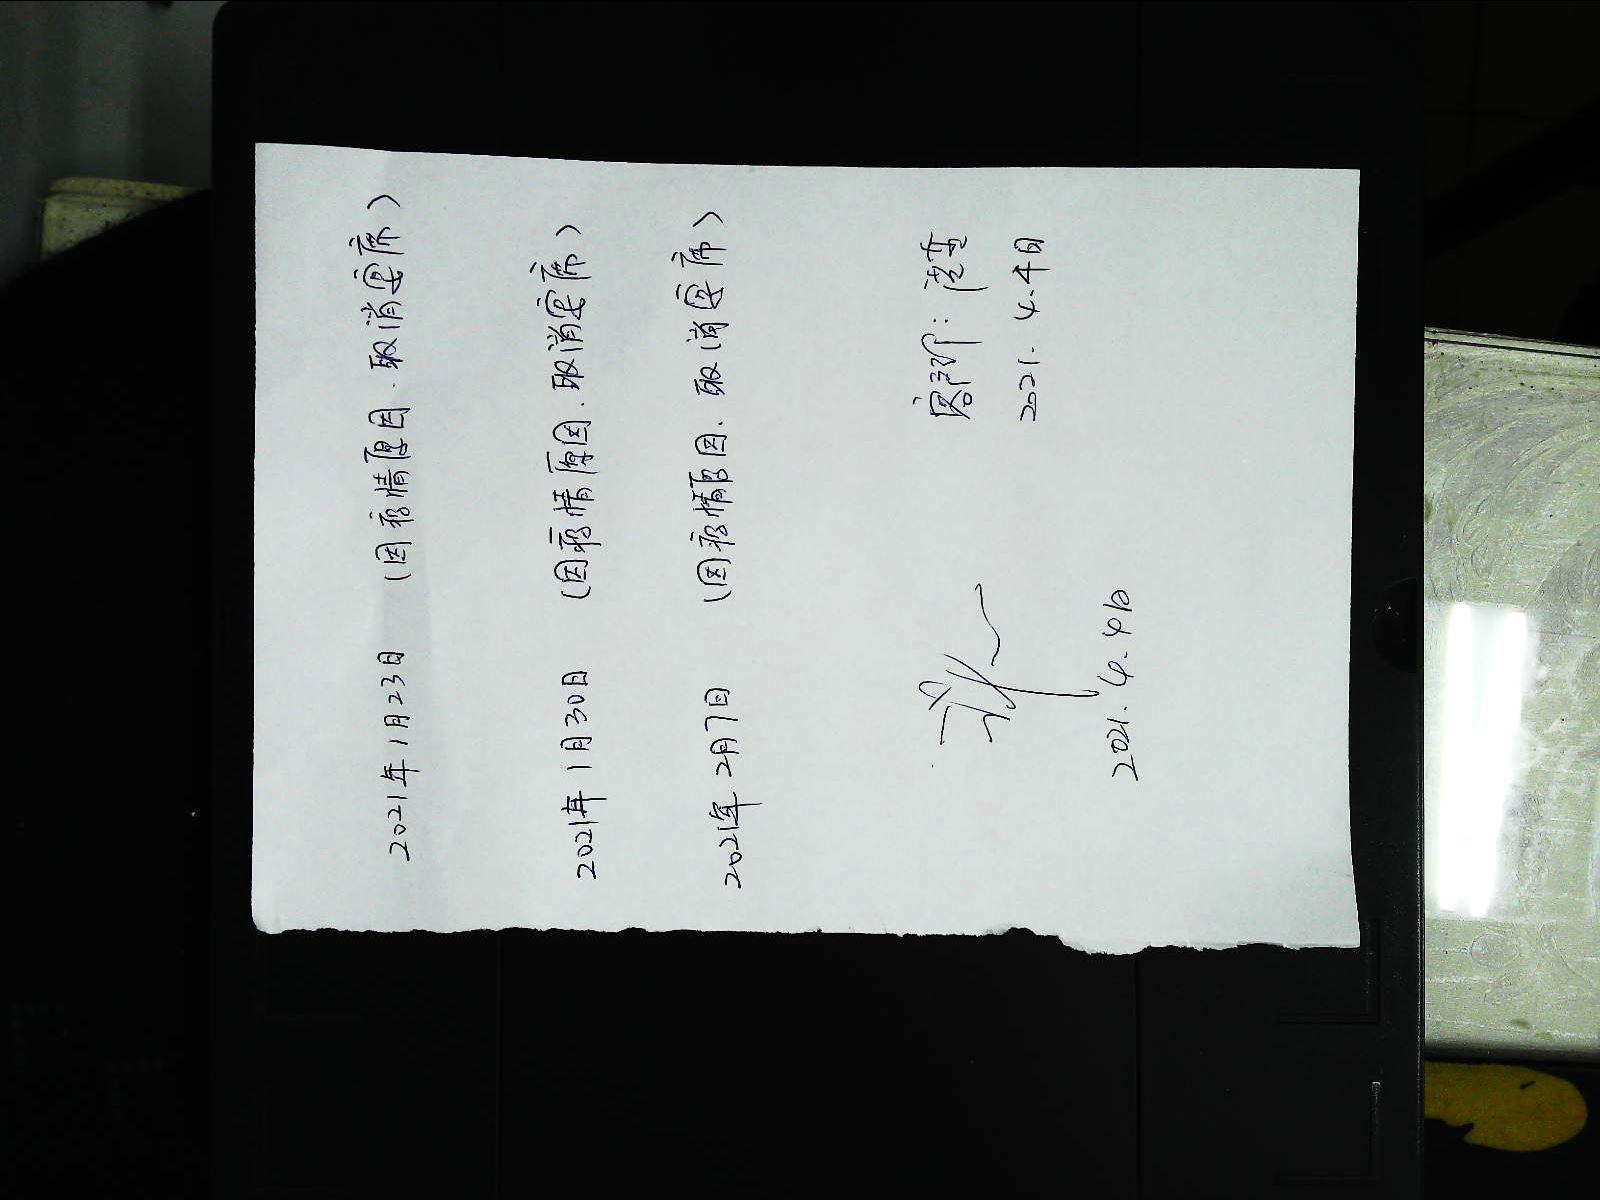 2021年1月23日 (因疫情原因.取消宴席)
2021年1月30日 (因疫情原因.取消宴席)
2021年2月7日 (因疫情原因.取消宴席)
客部:
2021.4.4日
2021.4.4日